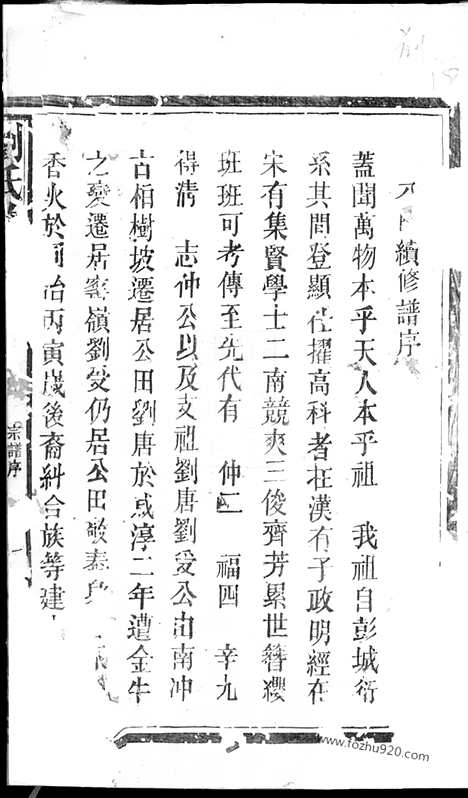 續修譜序
蓋聞萬物本乎天人本乎祖 我祖自彭城衍
系其間登顯仕擢高科者在漢有子政明經在
宋有集賢學士二南競爽三俊齊芳累世簪纓
班班可考傳至先代有 仲二 福四 辛九
得清 志仲公以及支祖劉唐劉受公由南冲
古柏樹坡遷居公田劉唐於咸淳二年遭金牛
之變遷居 嶺劉受仍居公田
香火於同治丙寅歲後裔糾合族等建
劉氏
宗譜序
www.fozhu920.com